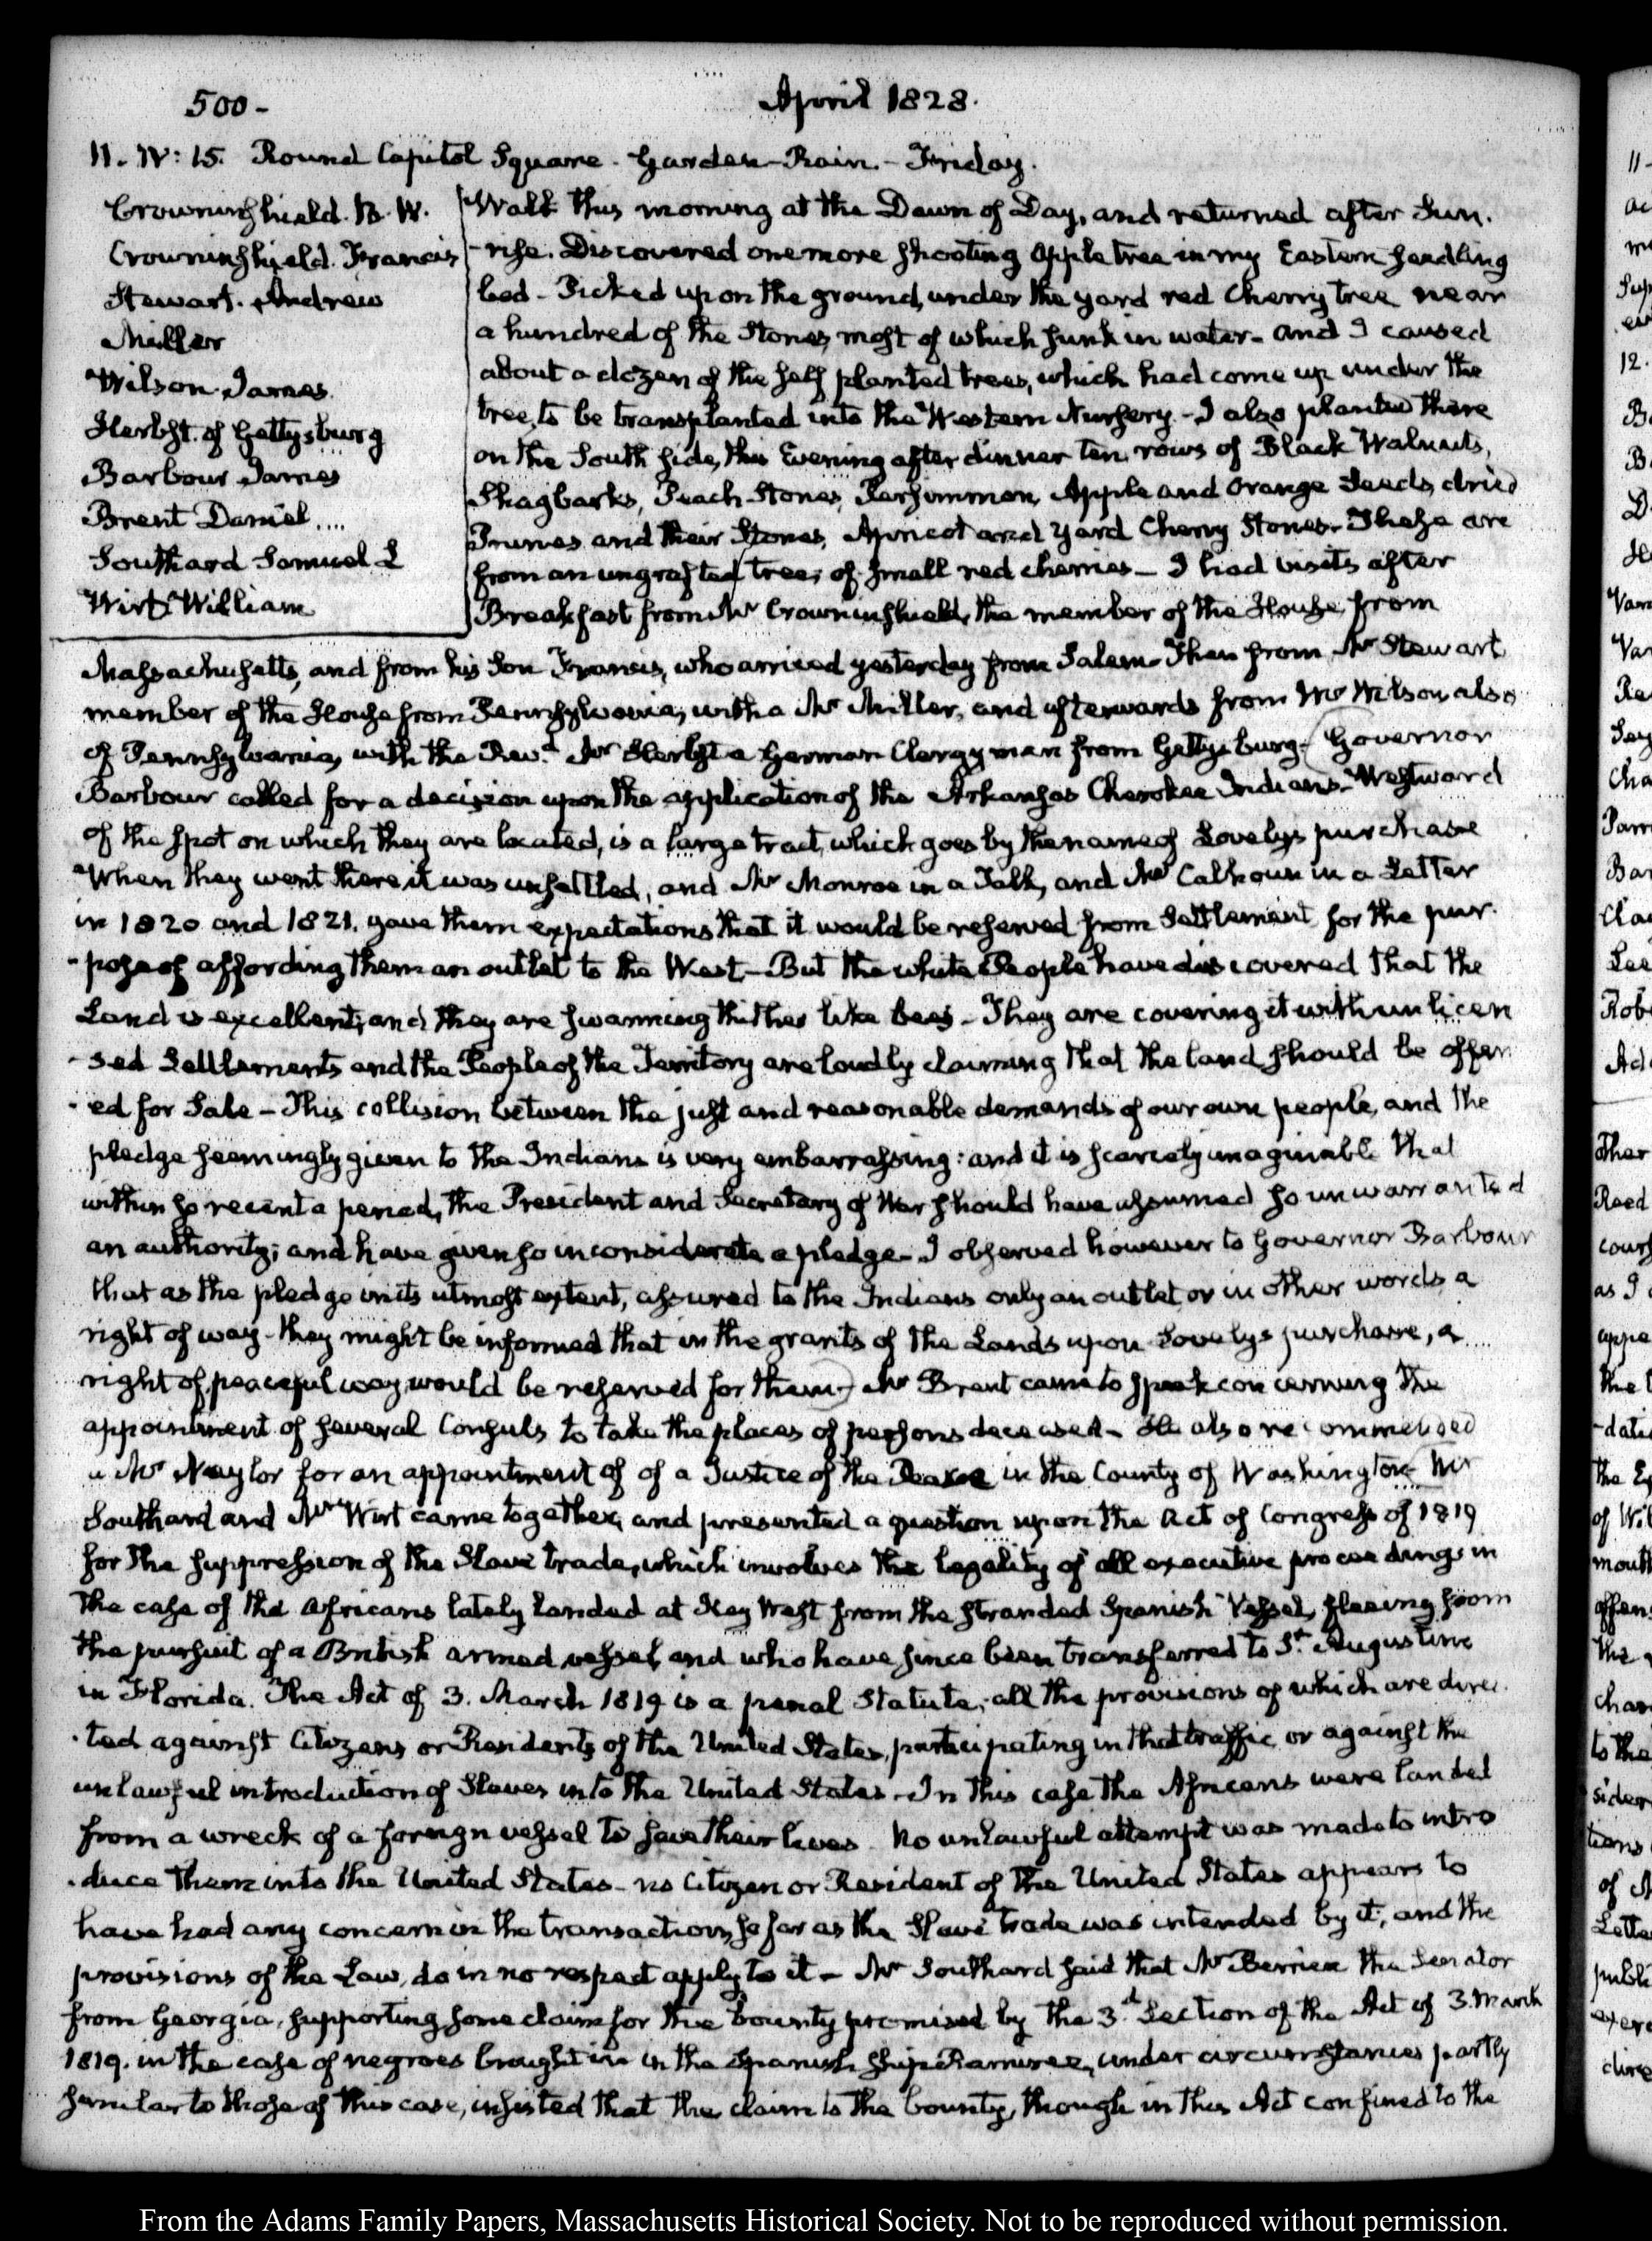 500-
April 1828.
11. IV: 15. Round Capitol Square. Garden-Rain.- Friday.
Crowninshield. B. W.
Crowninshield. Francis
Stewart. Andrew
Miller
Wilson. James.
Herbst. of Gettysburg
Barbour James
Brent Daniel....
Southard Samuel L
Wirt William
Walk this morning at the Dawn of Day, and returned after Sun.
-rise. Discovered one more shooting Apple tree in my Eastern seedling
bed - Picked up on the ground, under the yard red Cherry tree near
a hundred of the Stones, most of which sunk in water- and I caused
about a dozen of the self planted trees, which had come up under the
tree, to be transplanted into the Western Nursery - I also planted there
on the South side, this Evening after dinner ten rows of Black Walnuts,
Shagbarks, Peach-Stones, Persimmon, Apple and Orange Seeds, dried
Prunes and their Stones, Apricot and yard Cherry Stones- These are
from an ungrafted tree, of small red cherries - I had visits after
Breakfast from Mr Crowninshield, the member of the House from
Massachusetts, and from his Son Francis, who arrived yesterday from Salem- Then from Mr Stewart
member of the House from Pennsylvania, with a Mr Miller, and afterwards from Mr Wilson also
of Pennsylvania, with the Revd. Mr Herbst a German Clergyman from Gettysburg- Governor
Barbour called for a decision upon the application of the Arkansas Cherokee Indians- Westward
of the spot on which they are located, is a large tract, which goes by the name of Lovelys purchase
When they went there it was unsettled, and Mr Monroe in a Talk, and Mr Calhoun in a Letter
in 1820 and 1821. gave them expectations that it would be reserved from Settlement for the pur-
-pose of affording them an outlet to the West- But the white People have discovered that the
Land is excellent, and they are swarming thither like bees - They are covering it with unlicen
-sed Settlements and the People of the Territory are loudly claiming that the land should be offer
-ed for Sale - This collision between the just and reasonable demands of our own people, and the
pledge seemingly given to the Indians is very embarrassing: and it is scarcely imaginable that
within so recent a period, the President and Secretary of War should have assumed so unwarranted
an authority; and have given so inconsiderate a pledge- I observed however to Governor Barbour
that as the pledge in its utmost extent, assured to the Indians only an outlet or in other words a
right of way- they might be informed that in the grants of the Lands upon Lovelys purchase, a
right of peaceful way would be reserved for them- Mr Brent came to speak concerning the
appointment of several Consuls to take the places of persons deceased- He also recommended
a Mr Naylor for an appointment of of a Justice of the Peace in the County of Washington- Mr
Southard and Mr Wirt came together, and presented a question upon the Act of Congress of 1819
for the suppression of the Slave trade, which involves the legality of all executive proceedings in
the case of the Africans lately landed at Key West from the stranded Spanish Vessel, fleeing from
the pursuit of a British armed vessel, and who have since been transferred to St. Augustine
in Florida. The Act of 3. March 1819 is a penal Statute, all the provisions of which are direc.
-ted against Citizens or Residents of the United States, participating in that traffic, or against the
unlawful introduction of Slaves into the United States.- In this case the Africans were landed
from a wreck of a foreign vessel to save their lives. No unlawful attempt was made to intro
-duce them into the United States- no Citizen or Resident of the United States appears to
have had any concern in the transaction, so far as the Slave trade was intended by it; and the
provisions of the Law, do in no respect apply to it - Mr Southard said that Mr Berrien the Senator
from Georgia, supporting some claim for the bounty promised by the 3d. Section of the Act of 3. March
1819. in the case of negroes brought in in the Spanish Ship Ramirez, under circumstances partly
similar to those of this case, insisted that the claim to the bounty, though in this Act confined to the
From the Adams Family Papers, Massachusetts Historical Society. Not to be reproduced without permission.